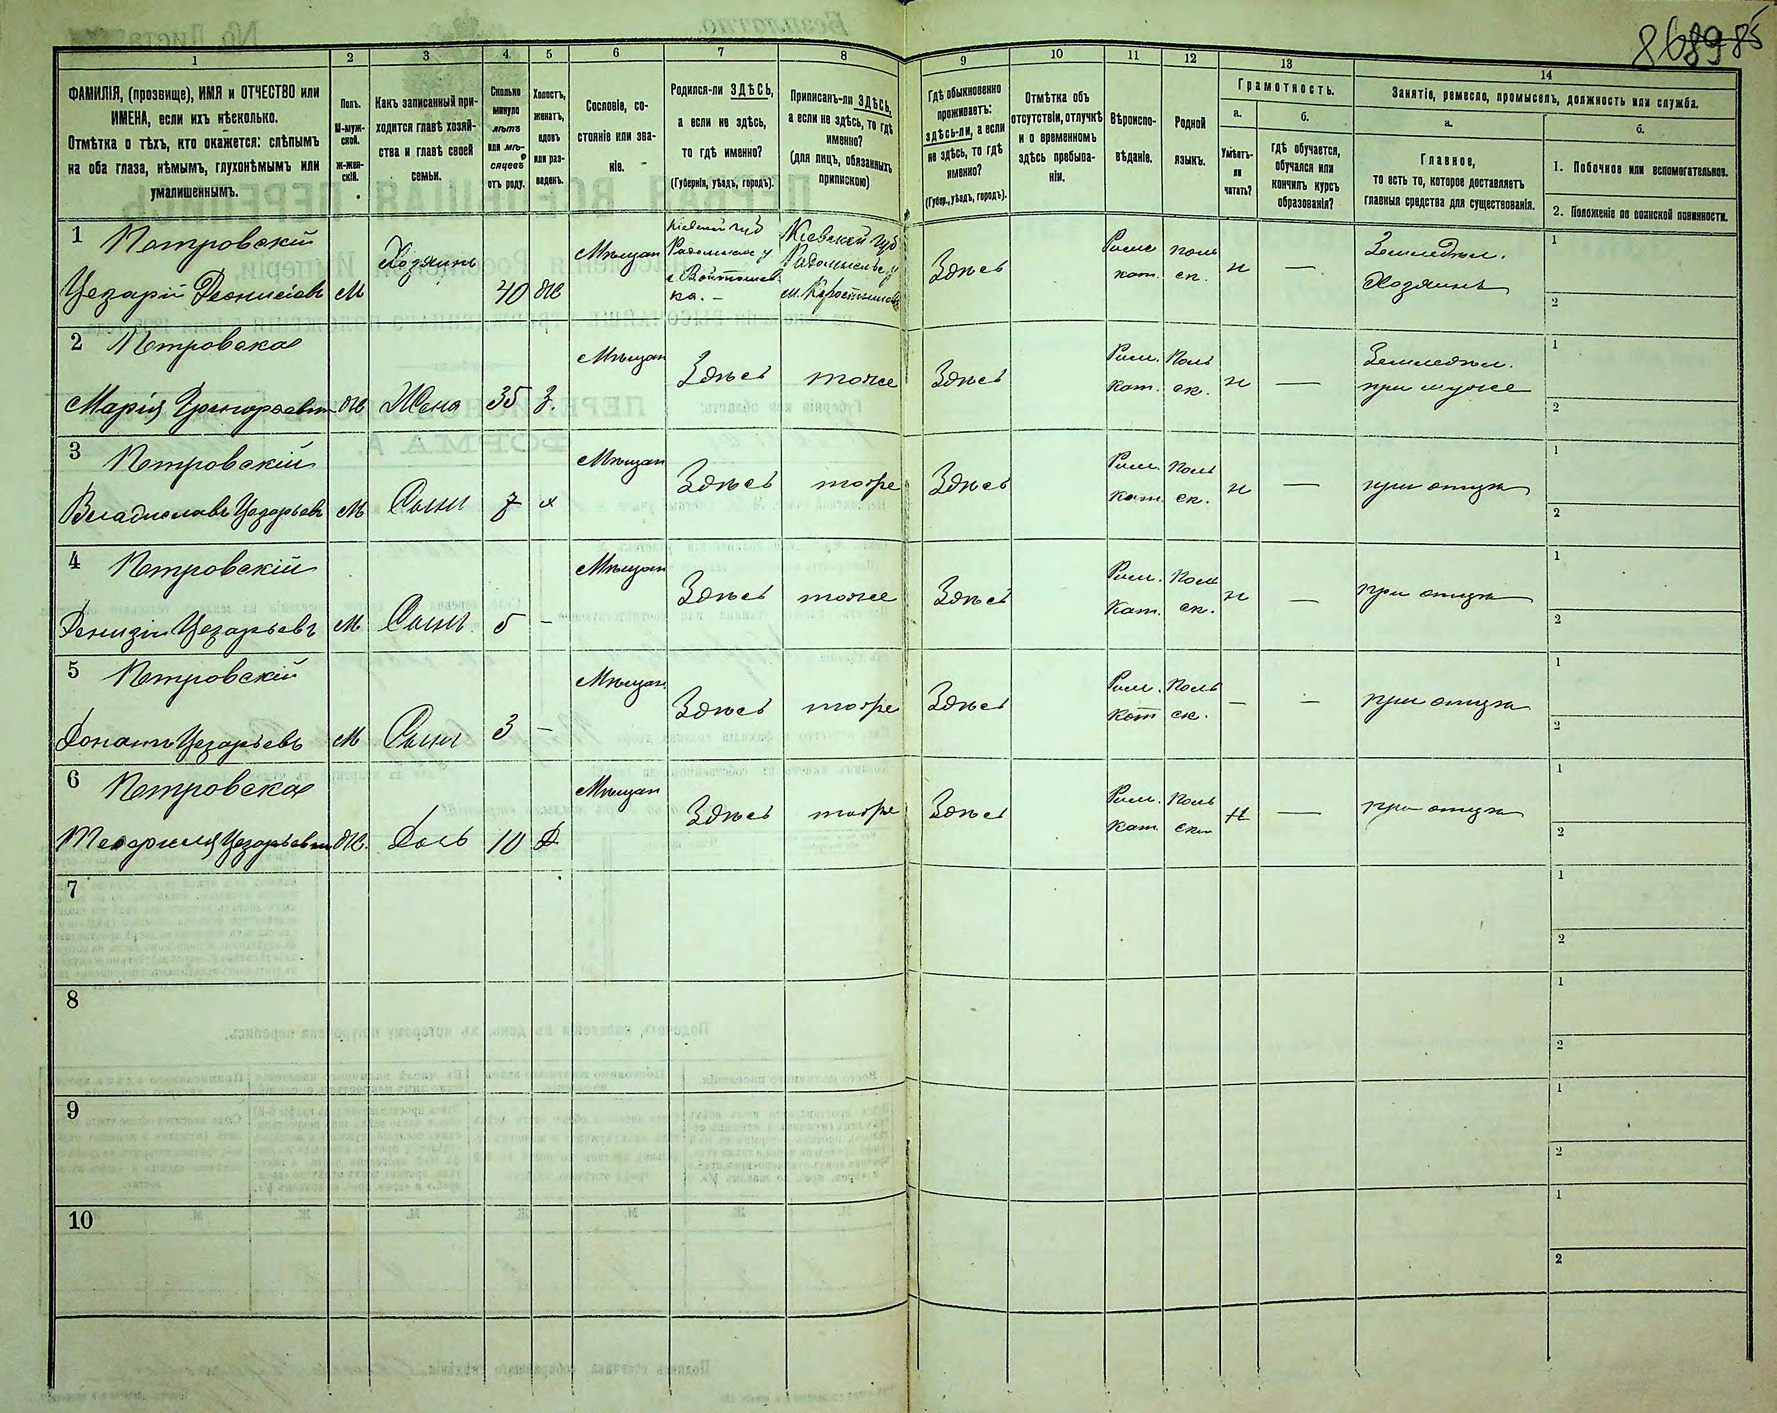 868985
1 2 3 4 5 6 7 8 9 10 11 12 13 14
ФАМИЛІЯ, (прозвище), ИМЯ и ОТЧЕСТВО или
ИМЕНА, если ихъ нѣсколько.
Отмѣтка о тѣхъ, кто окажется: слѣпымъ
на оба глаза, нѣмымъ, глухонѣмымъ или
умалишеннымъ.
Полъ.
М-муж-
ской.
ж-жен-
скій.
Какъ записанный при-
ходится главѣ хозяй-
ства и главѣ своей
семьи.
Сколько
минуло
лѣтъ
или мѣ-
сяцевъ
отъ роду.
Холостъ,
женатъ,
вдовъ
или раз-
веденъ.
Сословіе, со-
стояніе или зва-
ніе.
Родился-ли ЗДѢСЬ,
а если не здѣсь,
то гдѣ именно?
(Губернія, уѣздъ, городъ).
Приписанъ-ли ЗДѢСЬ,
а если не здѣсь, то гдѣ
именно?
(для лицъ, обязанныхъ
припискою)
Гдѣ обыкновенно
проживаетъ:
здѣсь-ли, а если
не здѣсь, то гдѣ
именно?
(Губер., уѣздъ, городъ).
Отмѣтка объ
отсутствіи, отлучкѣ
и о временномъ
здѣсь пребыва-
ніи.
Вѣроиспо-
вѣданіе.
Родной
языкъ.
Грамотность.
а.
Умѣетъ-
ли
читать?
б.
гдѣ обучается,
обучался или
кончилъ курсъ
образованія?
Занятіе, ремесло, промыселъ, должность или служба.
а.
Главное,
то есть то, которое доставляетъ
главныя средства для существованія.
б.
1. Побочное или вспомогательное.
2. Положеніе по воинской повинности.
1 Петровскій
Цезарій Деонисіевъ М Хозяинъ 40 ж Мѣщан
Кіевской губ
Радомыск у
с Войташев
ка. —
Кіевской губ
Радомыск у
м. Коростышев
Здѣсь
Римс
кат.
Поль
ск.
н —
Земледѣл.
Хозяинъ
1
2
2 Петровская
Марія Григорьевн ж Жена 35 З. Мѣщан Здѣсь тоже Здѣсь
Рим.
кат.
Поль
ск.
н —
Земледѣл.
при мужѣ
1
2
3 Петровскій
Владиславъ Цезарьевъ М Сынъ 7 х Мѣщан Здѣсь тоже Здѣсь
Рим.
кат.
Поль
ск.
н — при отцѣ
1
2
4 Петровскій
Денизій Цезарьевъ М Сынъ 5 — Мѣщан Здѣсь тоже Здѣсь
Рим.
кат.
Поль
ск.
н — при отцѣ
1
2
5 Петровскій
Донатъ Цезарьевъ М Сынъ 3 — Мѣщан Здѣсь тоже Здѣсь
Рим.
кат
Поль
ск.
— — при отцѣ
1
2
6 Петровская
Теофиля Цезарьевн ж. Дочь 10 Д Мѣщан Здѣсь тоже Здѣсь
Рим.
кат
Поль
ск
н — при отцѣ
1
2
7
1
2
8
1
2
9
1
2
10
1
2